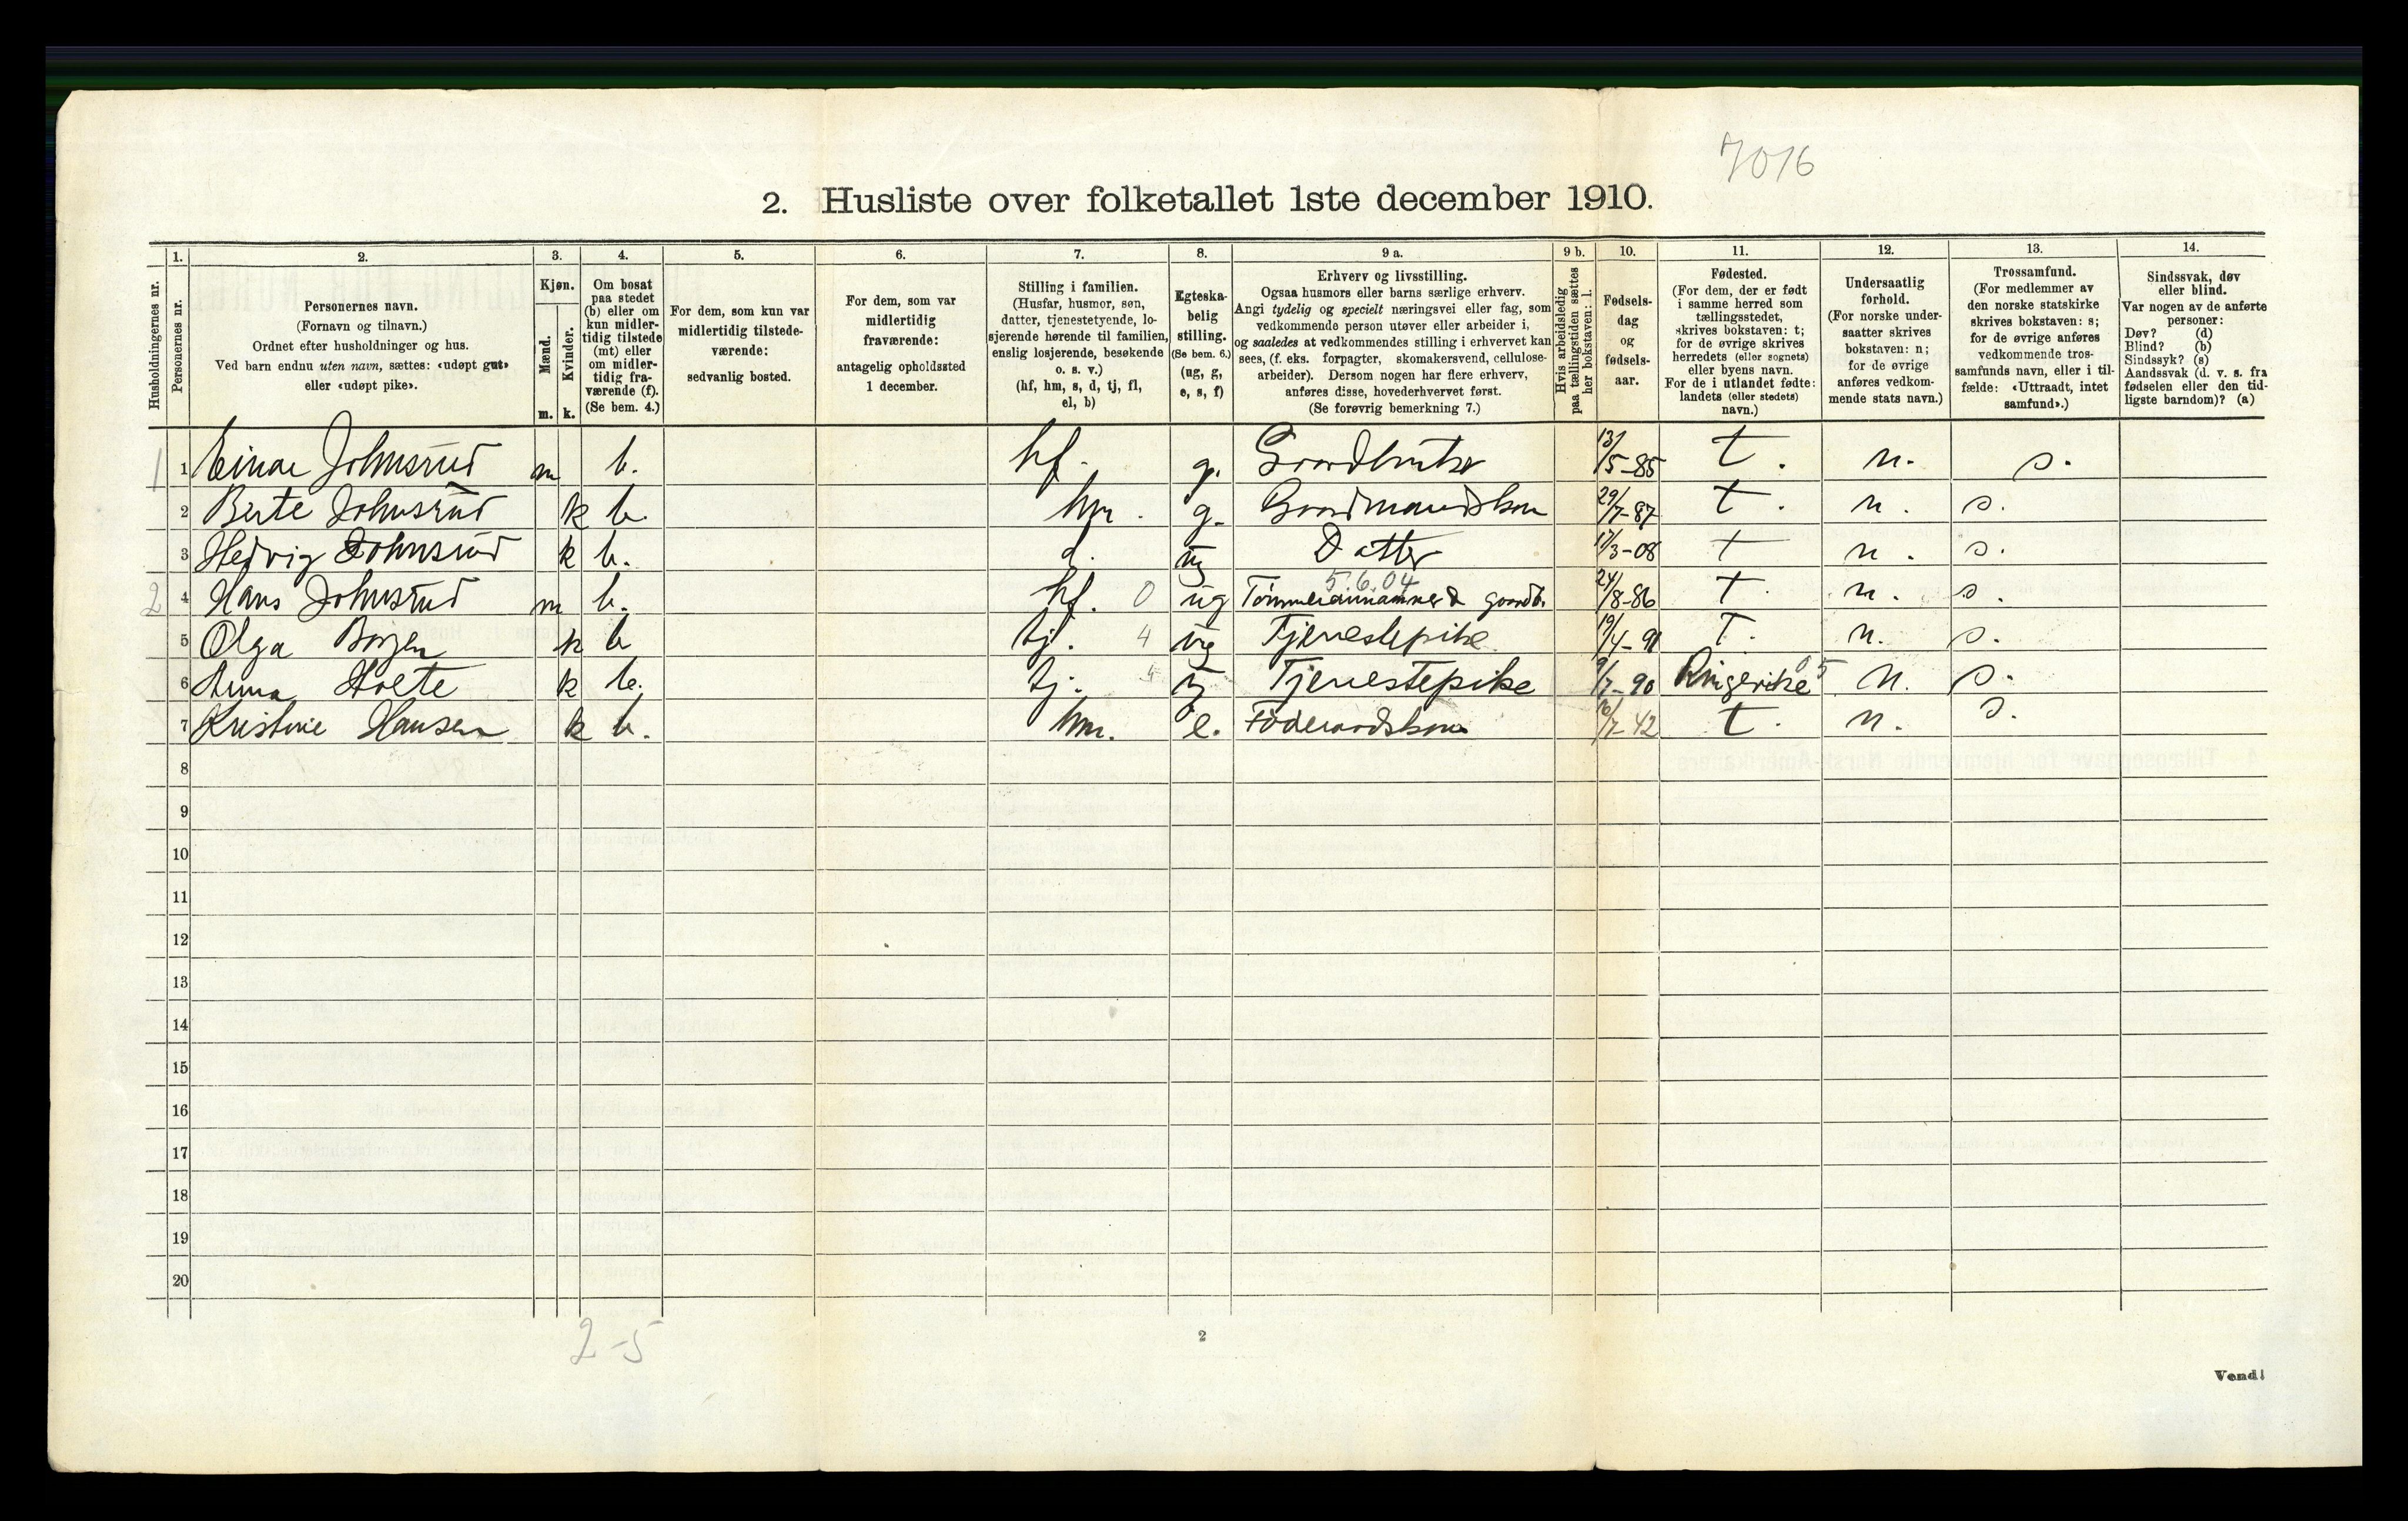 7016
2. Husliste over folketallet 1ste december 1910.
1. 2. 3. 4. 5. 6. 7. 8. 9 a. 9 b. 10. 11. 12. 13. 14.
Husholdningernes nr.
Personernes nr.
Personernes navn.
(Fornavn og tilnavn.)
Ordnet efter husholdninger og hus.
Ved barn endnu uten navn, sættes: «udøpt gut»
eller «udøpt pike».
Kjøn.
Mænd.
Kvinder.
m. k.
Om bosat
paa stedet
(b) eller om
kun midler-
tidig tilstede
(mt) eller
om midler-
tidig fra-
værende (f).
(Se bem. 4.)
For dem, som kun var
midlertidig tilstede-
værende:
sedvanlig bosted.
For dem, som var
midlertidig
fraværende:
antagelig opholdssted
1 december.
Stilling i familien.
(Husfar, husmor, søn,
datter, tjenestetyende, lo-
sjerende hørende til familien,
enslig losjerende, besøkende
o. s. v.)
(hf, hm, s, d, tj, fl,
el, b)
Egteska-
belig
stilling.
(Se bem. 6.)
(ug, g,
e, s, f)
Erhverv og livsstilling.
Ogsaa husmors eller barns særlige erhverv.
Angi tydelig og specielt næringsvei eller fag, som
vedkommende person utøver eller arbeider i,
og saaledes at vedkommendes stilling i erhvervet kan
sees, (f. eks. forpagter, skomakersvend, cellulose-
arbeider). Dersom nogen har flere erhverv,
anføres disse, hovederhvervet først.
(Se forøvrig bemerkning 7.)
Hvis arbeidsledig
paa tællingstiden sættes
her bokstaven: l.
Fødsels-
dag
og
fødsels-
aar.
Fødested.
(For dem, der er født
i samme herred som
tællingsstedet,
skrives bokstaven: t;
for de øvrige skrives
herredets (eller sognets)
eller byens navn.
For de i utlandet fødte:
landets (eller stedets)
navn.)
Undersaatlig
forhold.
(For norske under-
saatter skrives
bokstaven: n;
for de øvrige
anføres vedkom-
mende stats navn.)
Trossamfund.
(For medlemmer av
den norske statskirke
skrives bokstaven: s;
for de øvrige anføres
vedkommende tros-
samfunds navn, eller i til-
fælde: «Uttraadt, intet
samfund».)
Sindssvak, døv
eller blind.
Var nogen av de anførte
personer:
Døv? (d)
Blind? (b)
Sindssyk? (s)
Aandssvak (d. v. s. fra
fødselen eller den tid-
ligste barndom)? (a)
1 1 Einar Johnsrud m b. hf. g. Gaardbruker 13/5-85 t. n. s.
2 Berte Johnsrud k b. hm. g. Gaardmandskone 29/7-87 t. n. s.
3 Hedvig Johnsrud k b. d. ug Datter 17/3-08 t n. s.
5.6.04
2 4 Hans Johnsrud m b. hf. 0 ug gaardb. 24/8-86 t. n. s.
5 Olga k b tj. 4 ug Tjenestepike 19/4-91 T. n. s.
6 Anna k b. tj. 4 ug Tjenestepike 9/7-90 Ringerike 05 n. s.
7 Kristine Hansen k b. hm. e. Föderaadskone 16/7-42 t. n. s.
8
9
10
11
12
13
14
15
16
17
18
19
20
2-5
2
Vend!